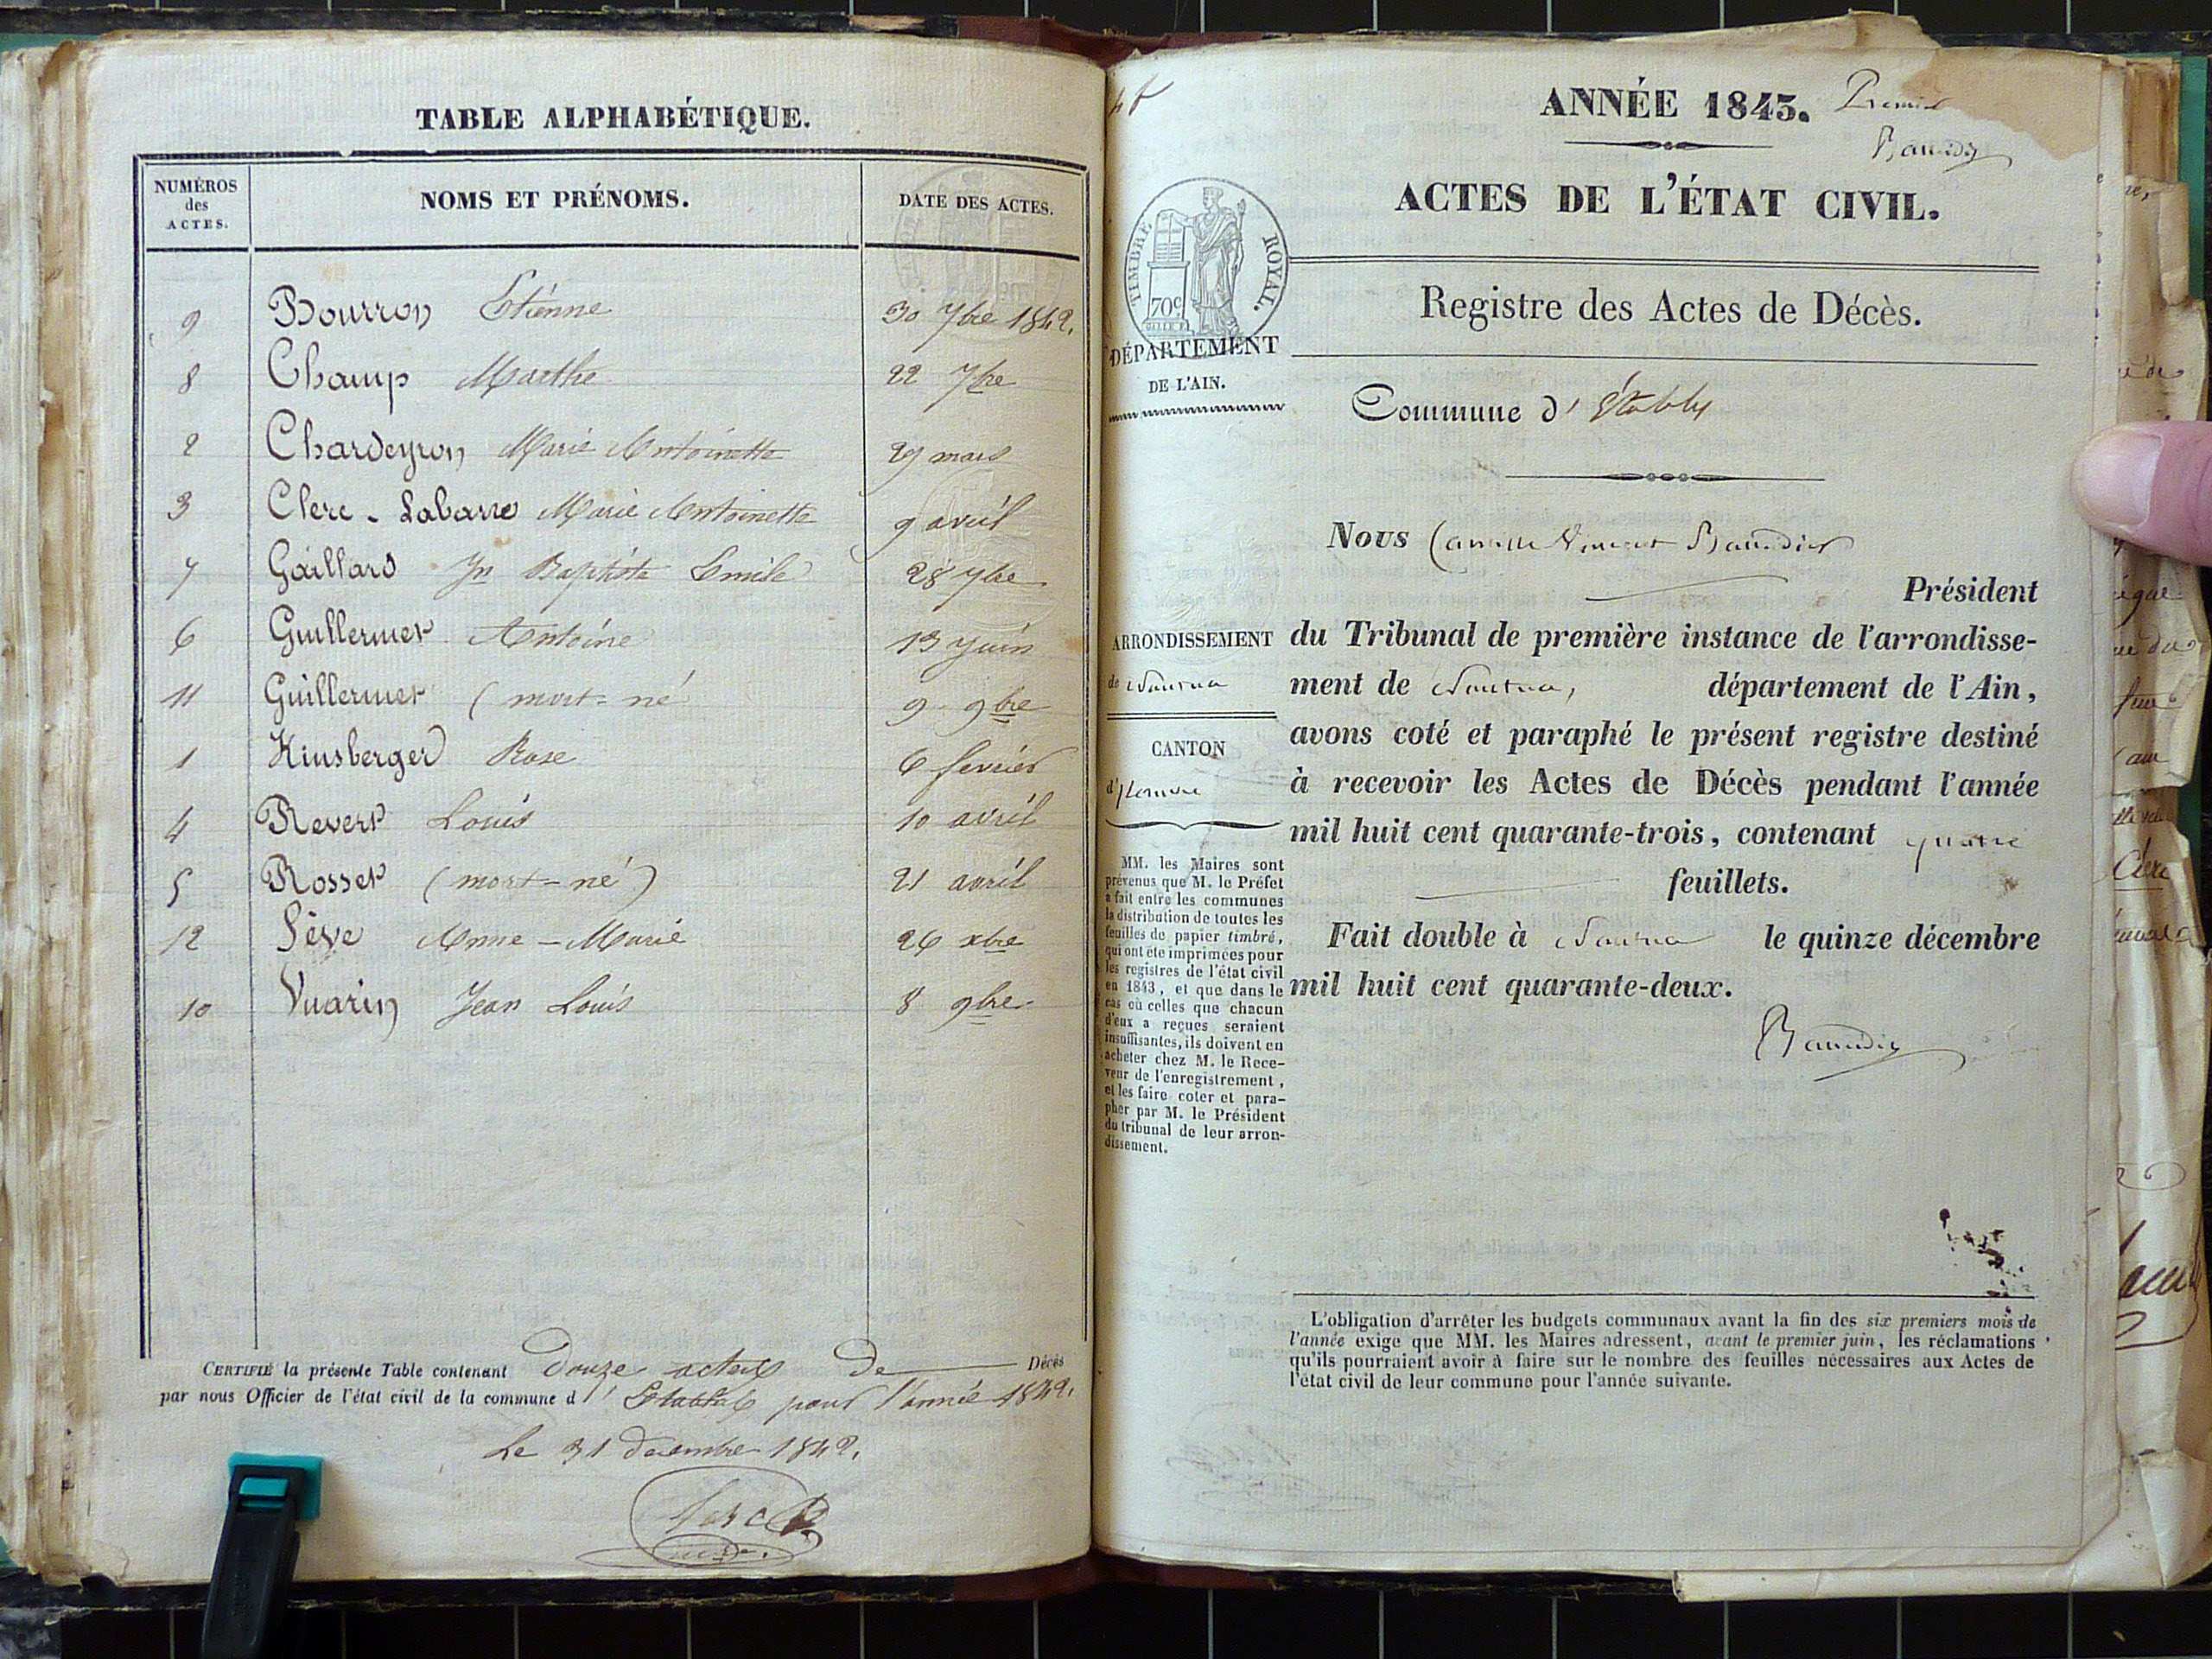 TABLE ALPHABÉTIQUE.
NUMÉROS
des
ACTES.
NOMS ET PRÉNOMS.
DATE DES ACTES.
9 Bourron Etienne 30 7bre 1842.
8 Champ Marthe 22 7bre
2 Chardeyron Marie Antoinette 29 mars
3 Clerc - Labarre Marie Antoinette 9 avril
7 Gaillard Jn Baptiste Emile 28 7bre
6 Guillermet Antoine 13 Juin
11 Guillermet (mort-né 9 9bre
1 Kinsberger Rose 6 fevrier
4 Revert Louis 10 avril
5 Rosset (mort-né) 21 avril
12 Sève Anne-Marie 26 xbre
10 Vuarin Jean Louis 8 9bre
CERTIFIÉ la présente Table contenant Douze actes de Décès
par nous Officier de l'état civil de la commune d' pour l'année 1842.
Le 31 Decembre 1842.
ANNÉE 1843. Premier
Baudin
ACTES DE L'ÉTAT CIVIL.
TIMBRE ROYAL.
70c
Registre des Actes de Décès.
DÉPARTEMENT
DE L'AIN.
Commune d'
Nous Camille Vincent
Président
ARRONDISSEMENT
de Nantua
CANTON
MM. les Maires sont
prévenus que M. le Préfet
a fait entre les communes
la distribution de toutes les
feuilles de papier timbré,
qui ont été imprimées pour
les registres de l'état civil
en 1843, et que dans le
cas où celles que chacun
d'eux a reçues seraient
insuffisantes, ils doivent en
acheter chez M. le Rece-
veur de l'enregistrement,
et les faire coter et para-
pher par M. le Président
du tribunal de leur arron-
dissement.
du Tribunal de première instance de l'arrondisse-
ment de Nantua, département de l'Ain,
avons coté et paraphé le présent registre destiné
à recevoir les Actes de Décès pendant l'année
mil huit cent quarante-trois, contenant quatre
feuillets.
Fait double à Nantua le quinze décembre
mil huit cent quarante-deux.
L'obligation d'arrêter les budgets communaux avant la fin des six premiers mois de
l'année exige que MM. les Maires adressent, avant le premier juin, les réclamations
qu'ils pourraient avoir à faire sur le nombre des feuilles nécessaires aux Actes de
l'état civil de leur commune pour l'année suivante.